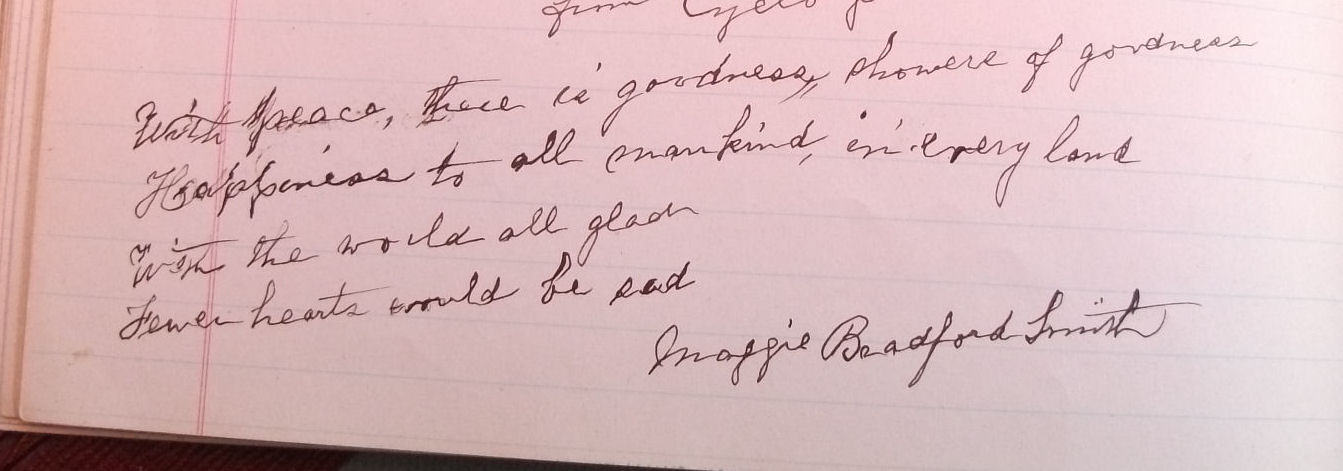 from
With peace, there is goodness, showers of goodness
Happiness to all mankind, in every land
With the world all glad
Fewer hearts would be sad
Maggie Bradford Smith